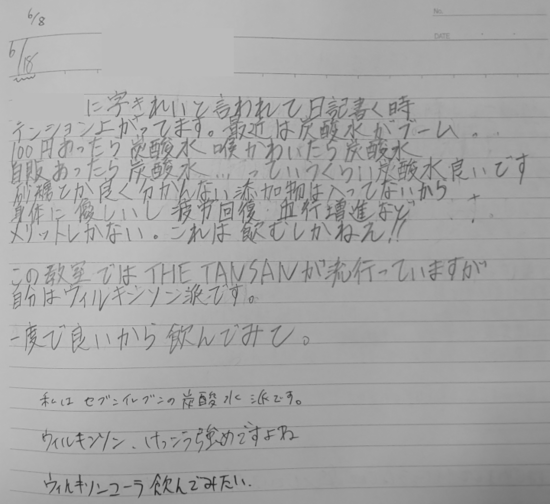 6/8
No.
DATE
6/15
に字きれいと言われて日記書く時
テンション上がってます。最近は炭酸水がブーム..
100円あったら炭酸水 喉かわいたら炭酸水
自販あったら炭酸水...っていうくらい炭酸水良いです
砂糖とか良く分かんない添加物は入ってないから
身体に優しいし 疲労回復 血行増進など
メリットしかない。これは飲むしかねえ!!
この教室ではTHE TANSANが流行っていますが
自分はウィルキンソン派です。
一度で良いから飲んでみて。
私はセブンイレブンの炭酸水派です。
ウィルキンソン、けっこう強めですよね
ウィルキンソンコーラ飲んでみたい.